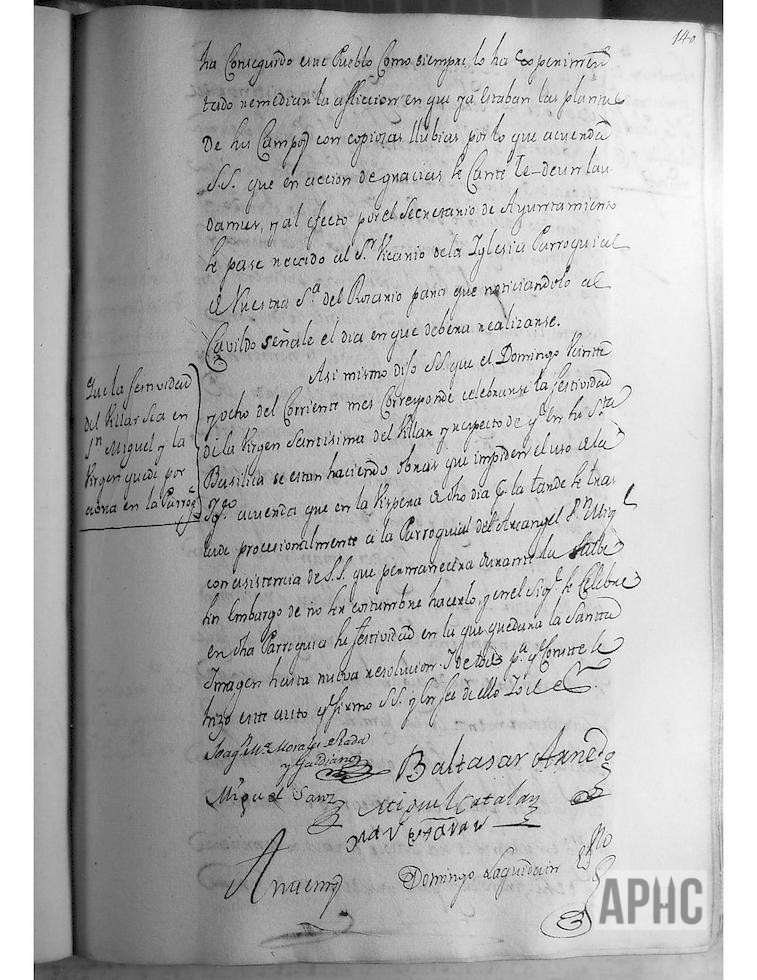 140
ha Conseguido este Pueblo Como siempre lo ha experimen
tado remedian la afliccion en que ya estaban las plantas
De los Campos con copiozas llubias por lo que acuerda
S.S. que en accion de gracias se Cante Te-deum lau
damus, y al efecto por el Secretario de Ayuntamiento
se pase recado al S.r Vicario dela Iglesia Parroquial
de Nuestra S.a del Rosario para que noticiandolo al
Cavildo señale el dia en que debera realizarse.
Asi mismo dijo S.S. que el Domingo Veinte
y ocho del Corriente mes Corresponde celebrarse la festividad
de la Virgen Santisima del Pilar y respecto de q.e en su S.ta
Basilica se estan haciendo obras que impiden el uso de la
acuerda que en la Vispera de dho dia por la tarde se tras
lade procesionalmente a la Parroquial del Arcangel S.n Mig.l
con asistencia de S.S. que permanecera durante la Salbe
sin Embargo de no ser costumbre hacerlo, y en el Sig.te se Celebre
en dha Parroquia su festividad en la que quedara la Santa
Imagen hasta nueva resolucion. I de todo p.a q.e Conste se
hizo este auto q.e firmo S.S. y en fee de ello Yo el
Que la festividad
del Pilar Sea en
S.n Miguel y la
Virgen quede por
aora en la Parroq.a
Joaq.n M.a Morales de Rada
y Gardiano
Baltasar Arnedo
Miguel Sanz
Miguel Catalan
Antemi
Domingo Laguidain
APHC